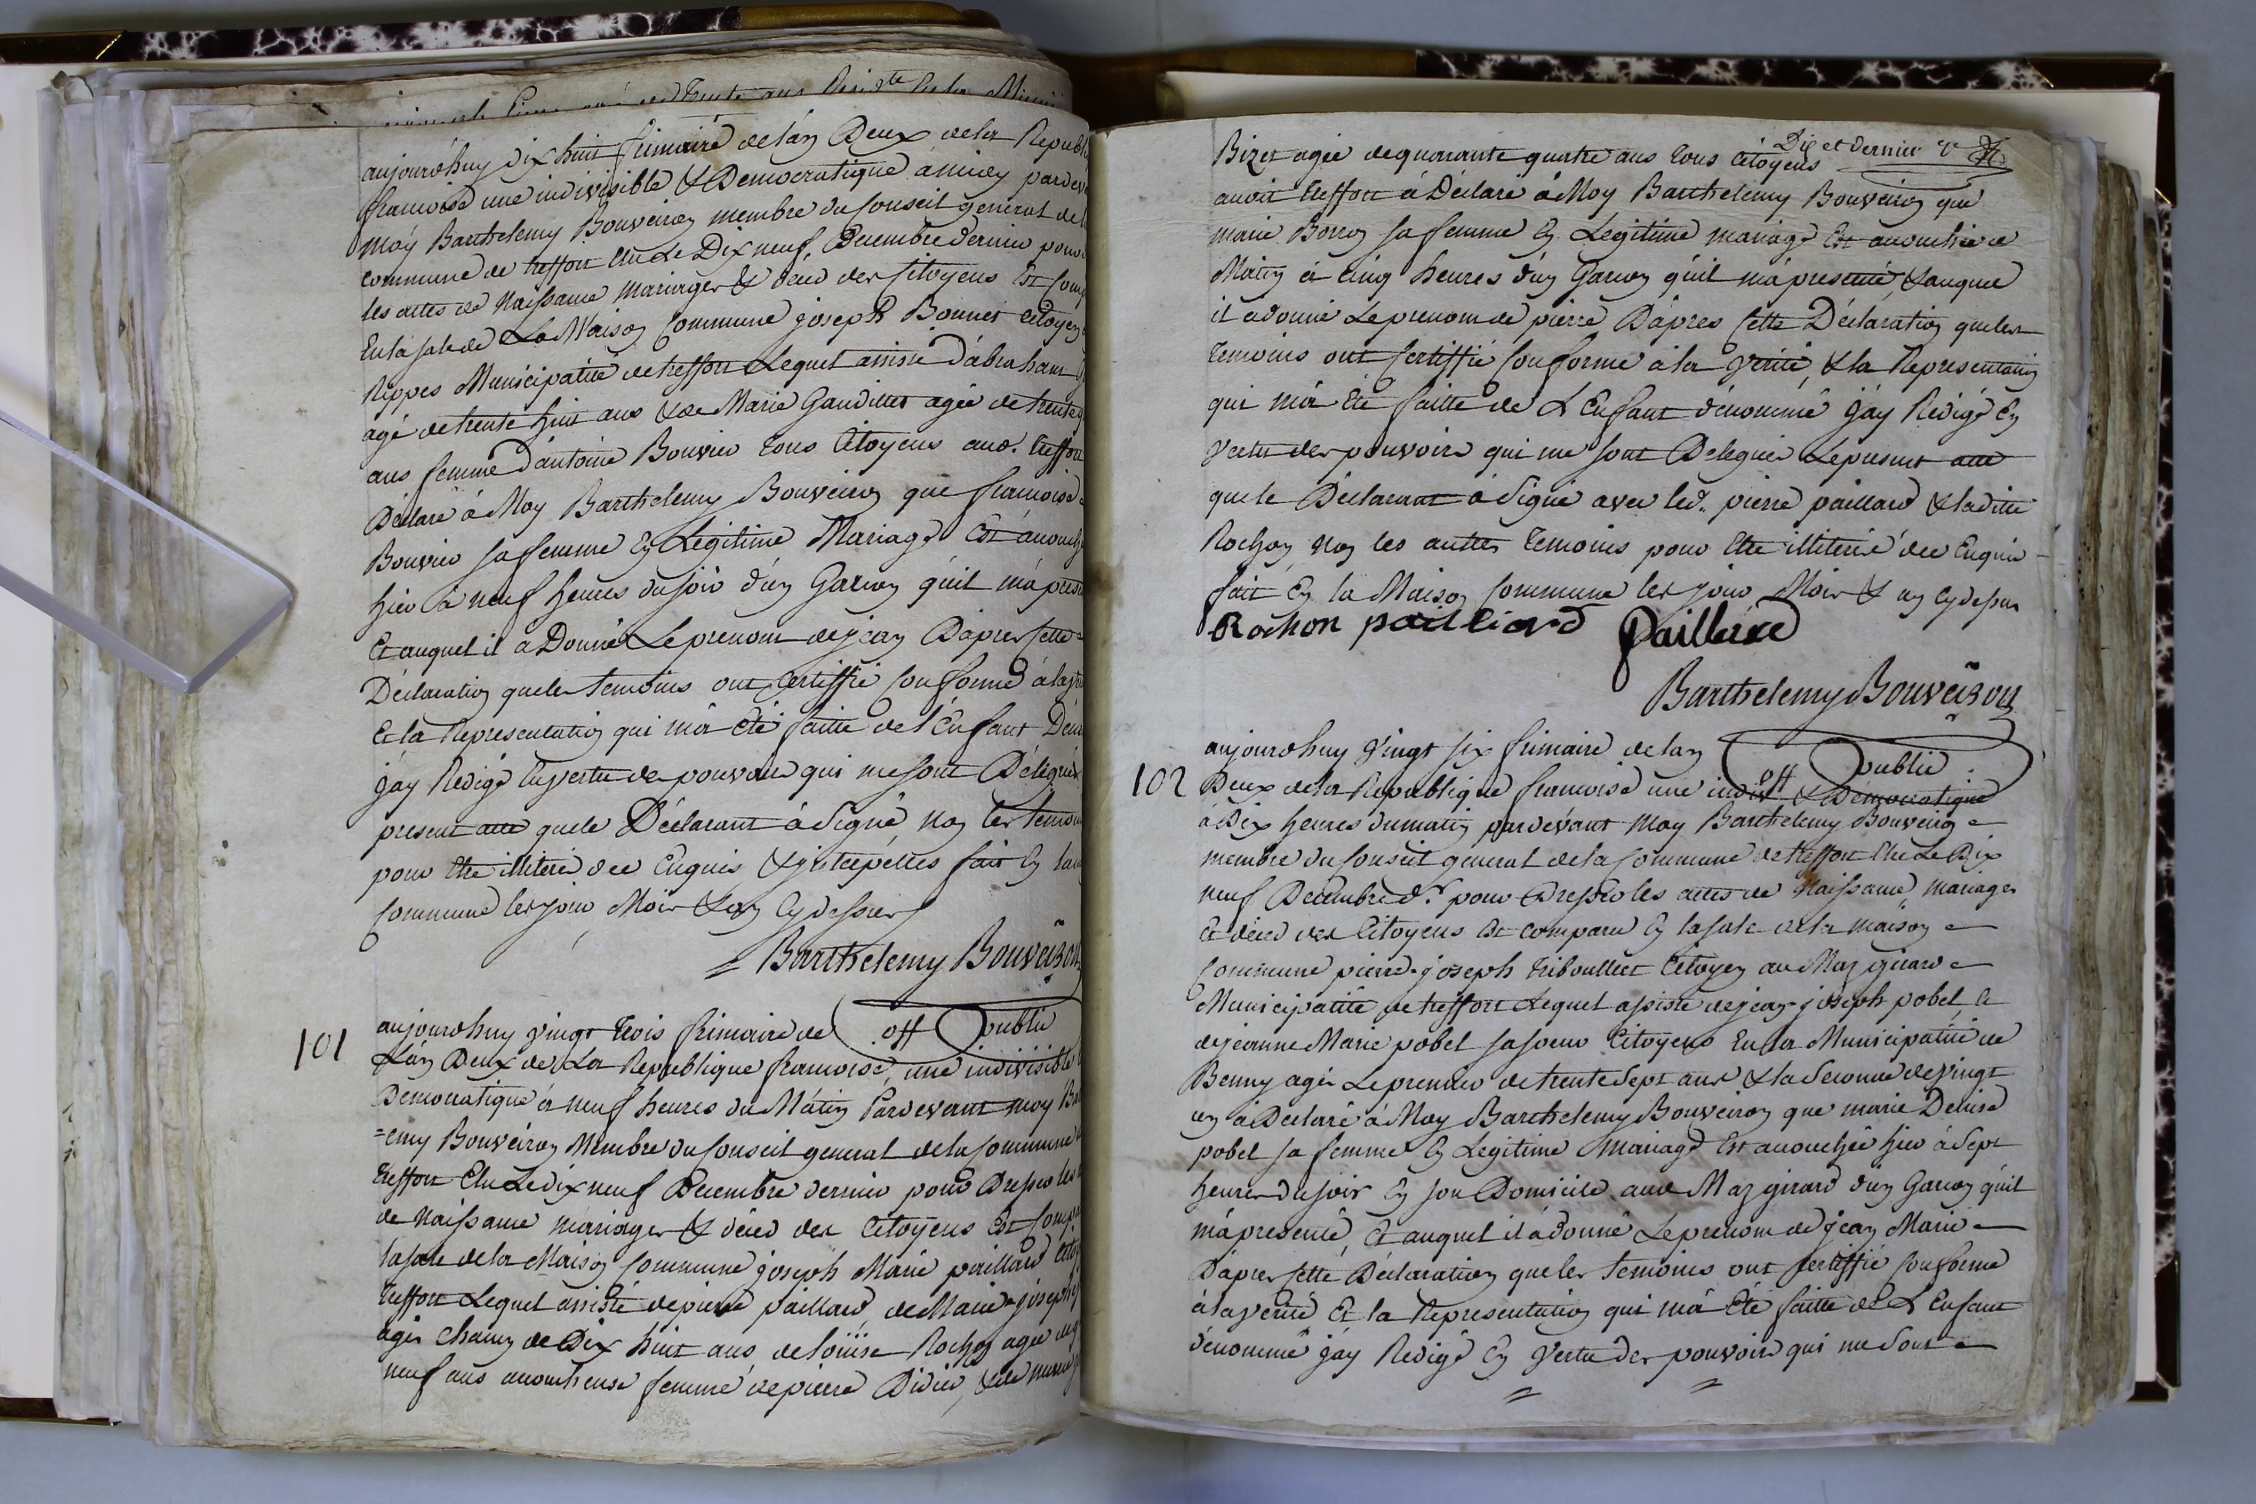 aujourd'huy dix huit frimaire de l'an Deux de la Republ
francoise une indivisible & Democratique à midy pardev
moy Barthelemy Bouveiron membre du Conseil general de
commune de treffort Elu Le Dix neuf Decembre dernier pour
les actes de Naissance mariages & déces des Citoyens Est Comp
En la sale de La Maison Commune joseph Bonnet Citoyen
Municipalité de treffort Lequel assisté d'abraham
agé de trente huit ans & de Marie Gaudillet agée de trente
ans femme d'antoine Bouvier tous Citoyens aud. treffort
Déclaré à Moy Barthelemy Bouveiron que francoise
Bouvier sa femme En Legitime Mariage Est accouch
hier à neuf heures du soir d'un Garcon qu'il m'a prese
Et auquel il a Donné Le prenom de jean D'apres Cette
Déclaration que les temoins ont Certiffié Conforme à la
Et la Representation qui m'a Eté faitte de l'Enfant Den
j'ay Redigé En vertu des pouvoirs qui me sont Délégués
present acte que le Déclarant à Signé, non les temoins
pour Etre illiteré de ce Enquis & jnterpellés fait En la
Commune les jour Mois & an Cy dessus
Barthelemy Bouveiron
off public
101
aujourdhuy vingt trois frimaire de
L'an Deux de La Republique francoise, une indivisible
Democratique à neuf heures du Matin Pardevant moy Ba
=emy Bouveiron Membre du Conseil general de la Commune
treffort Elu Le dix neuf Decembre dernier pour Dresser les
de Naissance mariages & déces des Citoyens Est Comp
la sale de la Maison Commune joseph Marie paillard Citoy
treffort Lequel assisté de pierre paillard, de Marie joseph
agés chacun de Dix huit ans de loüise Rochon agée de
neuf ans accoucheuse femme de pierre Didier, & de marie
Dix et dernier
Bizet agée de quarante quatre ans tous Citoyens
audit treffort à Déclaré à Moy Barthelemy Bouveiron que
marie Borron sa femme En Legitime mariage Est accouchée ce
Matin à Cinq heures d'un Garcon qu'il m'a presenté, & auquel
il a donné Le prenom de pierre D'apres Cette Déclaration que les
temoins ont Certiffié Conforme à la verité, & la Representation
qui m'a Eté faitte de L'Enfant dénommé j'ay Redigé En
vertu des pouvoirs qui me sont Delegués Le present acte
que le Déclarant à Signé avec led. pierre paillard & laditte
Rochon non les autres temoins pour Etre illiteré de ce Enquis
fait En la Maison Commune les jour Mois & an Cy dessus
Rochon pailliard Paillard
Barthelemy Bouveiron
off public
102
aujourdhuy vingt six frimaire de l'an
Deux de la Republique francoise une indivi & Démocratique
à Dix heures du matin pardevant moy Barthelemy Bouveiron
membre du Conseil general de la Commune de treffort Elu Le Dix
neuf Décembre dr. pour Dresser les actes de Naissance, mariages
Et déces des Citoyens Est comparu En la sale de la maison
Commune pierre-joseph triboullet Citoyen au Maz girard
Municipalité de treffort Lequel assisté de jean-joseph pobel, &
de jeanne Marie pobel sa soeur Citoyens En la Municipalité de
Benny agés Le premier de trente sept ans & la Seconde de vingt
un à Déclaré à Moy Barthelemy Bouveiron que marie Denise
pobel sa femme En Legitime mariage Est accouchée hier à Sept
heures du soir En son Domicile aud Maz girard d'un Garcon qu'il
m'a presenté, Et auquel il à donné Le prenom de jean Marie
D'apres Cette Déclaration que les temoins ont Certiffié Conforme
à la verité Et la Representation qui m'a Eté faitte de L'Enfant
dénommé j'ay Redigé En Vertu des pouvoirs qui me Sont